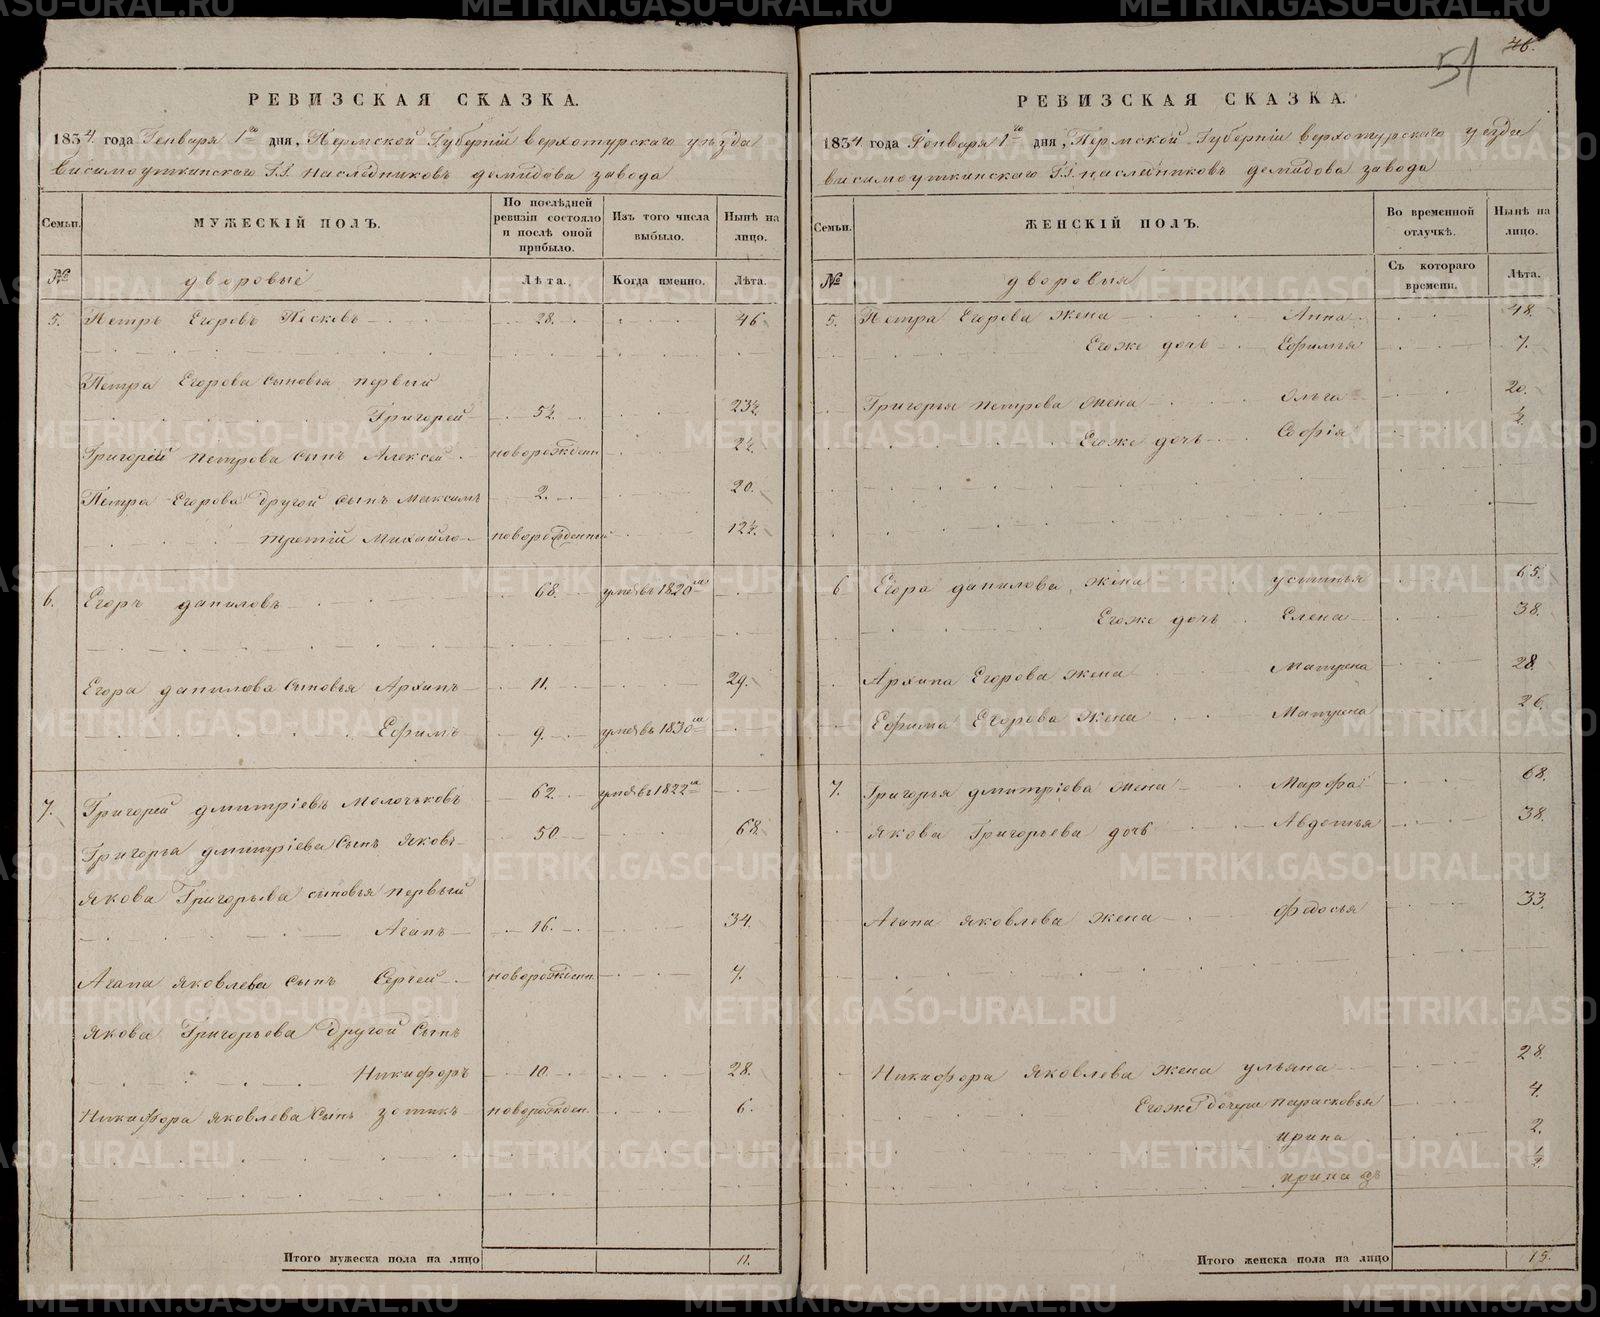 РЕВИЗСКАЯ СКАЗКА.
1834 года Генваря 1го дня, Пермской Губернiй верхотурскаго уѣзда
висимоуткинскаго Г.Г. наслѣдниковъ демидова завода
Семьи.
МУЖЕСКIЙ ПОЛЪ.
По послѣдней ревизiи состояло и послѣ оной прибыло.
Изъ того числа выбыло.
Нынѣ на лицо.
№
дворовые
Лѣта.
Когда именно.
Лѣта.
5. Петръ Егоровъ Песковъ 28. 46
Петра Егорова сыновья первый
Григорей 5½. 23½
Григорей Петрова сынъ Алексей новорожден 2½.
Петра Егорова другой сынъ Максимъ 2. 20.
третiй Михайло новорожденный 12½.
6. Егоръ даниловъ 68. умеъ въ 1820мъ
Егора данилова сыновья Архипъ 11. 29.
Ефимъ 9. умеъ въ 1830мъ
7. Григорей дмитрiевъ Молочковъ 62. умеъ въ 1822мъ
Григорья дмитрiева сынъ Яковъ 50 68.
Якова Григорьева сыновья первый
Агапъ 16. 34.
Агапа Яковлева сынъ Сергей новорожден. 7.
Якова Григорьева другой сынъ
Никифоръ 10. 28.
Никифора Яковлева сынъ зотикъ новорожден. 6.
Итого мужеска пола на лицо 11.
46.
51
РЕВИЗСКАЯ СКАЗКА.
1834 года Генваря 1го дня, Пермской Губернiи верхотурскаго уезда
висимоуткинскаго Г.Г. наследниковъ демидова завода
Семьи.
ЖЕНСКIЙ ПОЛЪ.
Во временной отлучкѣ.
Нынѣ на лицо.
№
дворовыя
Съ котораго времени.
Лѣта.
5. Петра Егорова жена Анна 48.
Егоже дочь Ефимья 7.
Григорья Петрова жена Ольга 20.
Егоже дочь Софiя ½.
6 Егора данилова жена устинья 65.
Егоже дочь Елена 38.
Архипа Егорова жена Матрена 28.
Ефима Егорова жена Матрена 26.
7. Григорья дмитрiева жена Марфа 68.
Якова Григорьева дочь Авдотья 38.
Агапа Яковлева жена Федосья 33.
Никифора Яковлева жена ульяна 28.
Егоже дочери парасковья 4.
ирина 2.
ирина ½.
Итого женска пола на лицо 15.
METRIKI.GASO-URAL.RU